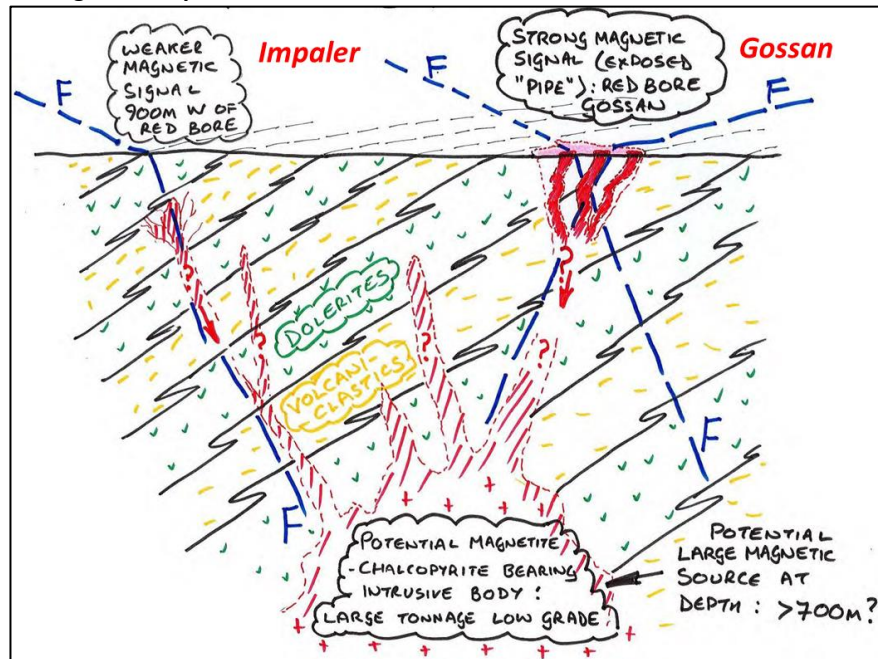 WEAKER
MAGNETIC
SIGNAL
900M W OF
RED BORE
Impaler
STRONG MAGNETIC
SIGNAL (EXPOSED
"PIPE"): RED BORE
GOSSAN
Gossan
F
F
F
?
?
?
?
?
DOLERITES
VOLCANI-
CLASTICS
F
F
POTENTIAL MAGNETITE
-CHALCOPYRITE BEARING
INTRUSIVE BODY:
LARGE TONNAGE LOW GRADE
POTENTIAL
LARGE MAGNETIC
SOURCE AT
DEPTH: >700M?